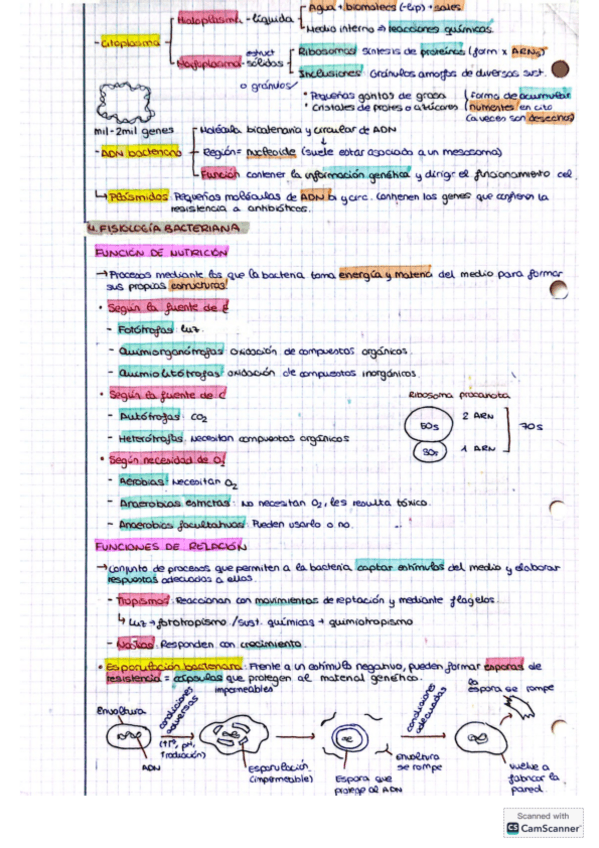 Agua + biomoléc (-lip) + sales
Hialoplasma - líquida
Medio interno ⇒ reacciones químicas.
- Citoplasma
estruct
Ribosomas síntesis de proteínas (form x ARNr)
Morfoplasma - sólidas
Inclusiones Gránulos amorfos de diversas sust.
o gránulos
• Pequeñas gotas de grasa (forma de acumular
• Cristales de protes o azúcares nutrientes en cito
(a veces son desechos)
mil - 2mil genes
Molécula bicatenaria y circular de ADN
- ADN bacteriano
Región = nucleoide (suele estar asociado a un mesosoma)
Función contener la información genética y dirigir el funcionamiento cel.
↳ Plásmidos: Pequeñas moléculas de ADN bi y circ. contienen los genes que confieren la
resistencia a antibióticos.
4. FISIOLOGÍA BACTERIANA
FUNCIÓN DE NUTRICIÓN
→ Procesos mediante los que la bacteria toma energía y materia del medio para formar
sus propias estructuras
• Según la fuente de E
- Fotótrofas: luz.
- Quimiorganótrofas: oxidación de compuestos orgánicos.
- Quimiolitótrofas: oxidación de compuestos inorgánicos.
• Según la fuente de C
Ribosoma procariota
- Autótrofas: CO2
50s
2 ARN
70s
- Heterótrofas: Necesitan compuestos orgánicos
30s
1 ARN
• Según necesidad de O2
- Aerobias: Necesitan O2
- Anaerobias estrictas: No necesitan O2, les resulta tóxico.
- Anaerobias facultativas: Pueden usarlo o no.
FUNCIONES DE RELACIÓN
→ Conjunto de procesos que permiten a la bacteria captar estímulos del medio y elaborar
respuestas adecuadas a ellos.
- Tropismos: Reaccionan con movimientos de reptación y mediante flagelos.
↳ Luz → fototropismo / sust. químicas → quimiotropismo
- Nastias: Responden con crecimiento.
• Esporulación bacteriana: Frente a un estímulo negativo, pueden formar esporas de
resistencia = cápsulas que protegen al material genético.
impermeables
la
espora se rompe
Envoltura
condiciones
adversas
condiciones
adecuadas
(↑Tª, pH,
↑radiación)
ADN
Esporulación
(impermeable)
Espora que
protege al ADN
envoltura
se rompe
vuelve a
fabricar la
pared.
Scanned with
CS CamScanner